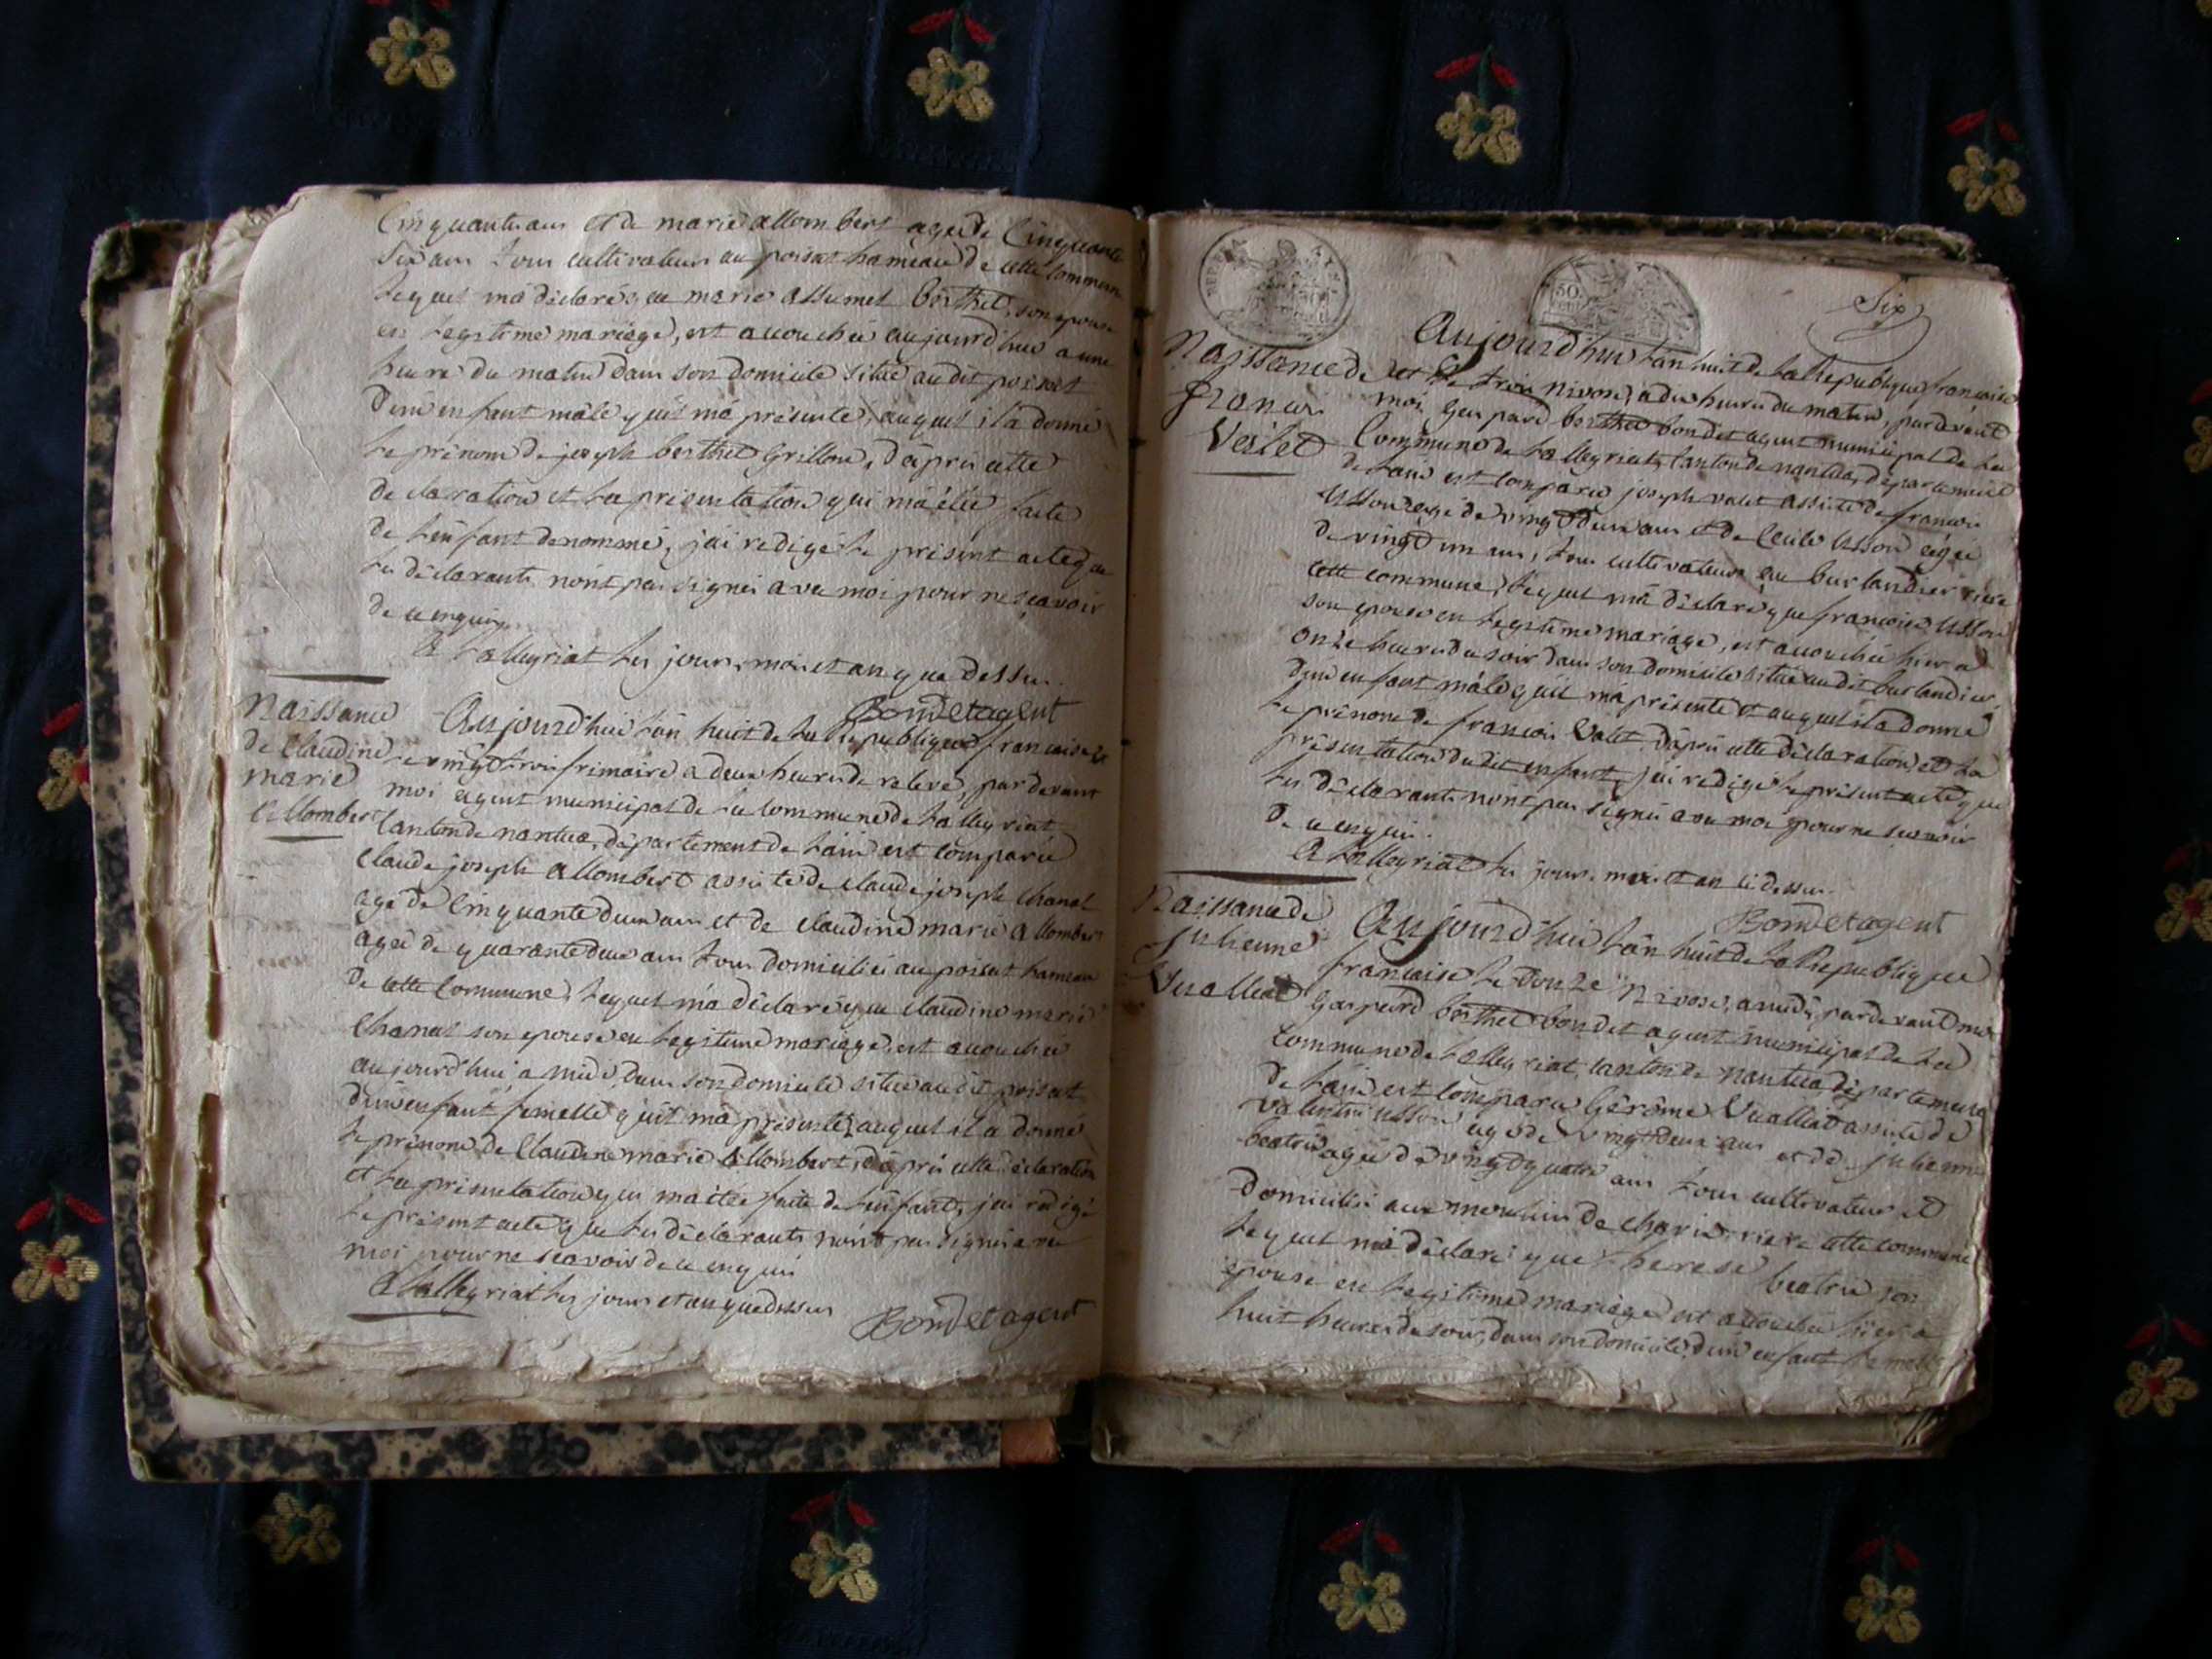 Cinquante ans et de marie allombert agée de Cinquante
six ans tous cultivateurs au poisat hameau de cette commune
lequel m'a déclaré que marie allumel berthet, son epouse
en legitime mariage, est accouchée aujourd'hui a une
heure du matin dans son domicile situé audit poisat
d'un enfant mâle qu'il m'a présenté, auquel il a donné
le prénom de joseph berthet Grillon, d'après cette
declaration et la présentation qui m'a étée faite
de l'enfant denommé, j'ai redigé le présent acte que
les déclarants n'ont pas signés avec moi pour ne sçavoir
de ce enquis
a lalleyriat les jour, mois et an que dessus.
Bondet agent
Naissance
de Claudine
marie
allombert
Aujourd'hui l'an huit de la Republique francaise
le vingt trois frimaire a deux heures de relevé, par devant
moi agent municipal de la Commune de lalleyriat
Canton de nantua, département de l'ain est comparu
Claude joseph allombert assisté de Claude joseph Chanal
agé de Cinquante deux ans et de claudine marie allombert
agée de quarante deux ans tous domiciliés au poisat hameau
de cette Commune, lequel m'a déclaré que claudine marie
Chanal son epouse en legitime mariage, est accouchée
aujourd'hui a midi, dans son domicile situé audit poisat
d'un enfant femelle qu'il m'a présenté, auquel il a donné
le prénom de Claudine marie allombert, d'après cette déclaration
et la présentation qui m'a étée faite de l'enfant, j'ai redigé
le présent acte que les déclarants n'ont pas signés avec
moi pour ne scavoir de ce enquis
a lalleyriat les jour et an que dessus
Bondet agent
Six
Naissance de
francois
Valet
Aujourd'hui l'an huit de la Republique francaise
et le trois nivose, a dix heures du matin, pardevant
moi gaspard berthet bondet agent municipal de la
Commune de lalleyriat, Canton de nantua, département
de l'ain est comparu joseph valet assisté de francois
Usson agé de vingt deux ans et de Cécile Usson agée
de vingt un ans, tous cultivateurs au burlandier riere
cette commune, lequel m'a déclaré que francoise Usson
son epouse en legitime mariage, est accouchée hier a
onze heures du soir dans son domicile situé audit burlandier,
d'un enfant mâle qu'il m'a présenté et auquel il a donné
le prénom de francois Valet, d'après cette déclaration et la
présentation dudit enfant, j'ai redigé le présent acte que
les déclarants n'ont pas signés avec moi pour ne scavoir
de ce enquis.
A lalleyriat les jour, mois et an ci dessus.
Bondet agent
Naissance de
julienne
Vuailliat
Aujourd'hui l'an huit de la Republique
francaise le douze nivose, a midi, pardevant moi
gaspard berthet bondet agent municipal de la
commune de lalleyriat, canton de nantua, département
de l'ain est comparu Gérôme Vuailliat assisté de
valentin usson agé de vingt deux ans et de julienne
beatrix agée de vingt quatre ans tous cultivateurs et
domiciliés aux moulin de charix riere cette commune
lequel m'a déclaré que therese beatrix son
epouse en legitime mariage est accouchée hier a
huit heures du soir, dans son domicile, d'un enfant femelle